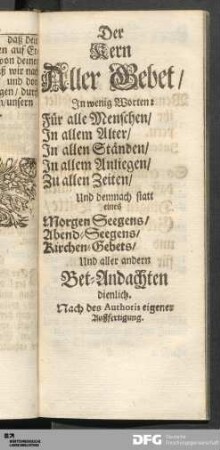 daß den
en auf Er
von deine
Der
Kern
Aller Gebet/
In wenig Worten:
Für alle Menschen/
In allem Alter/
In allen Ständen/
In allem Anliegen/
Zu allen Zeiten/
Und demnach statt
eines
Morgen Seegens/
Abend-Seegens/
Kirchen-Gebets/
Und aller andern
Bet-Andachten
dienlich.
Nach des Authoris eigener
Außfertigung.
DFG